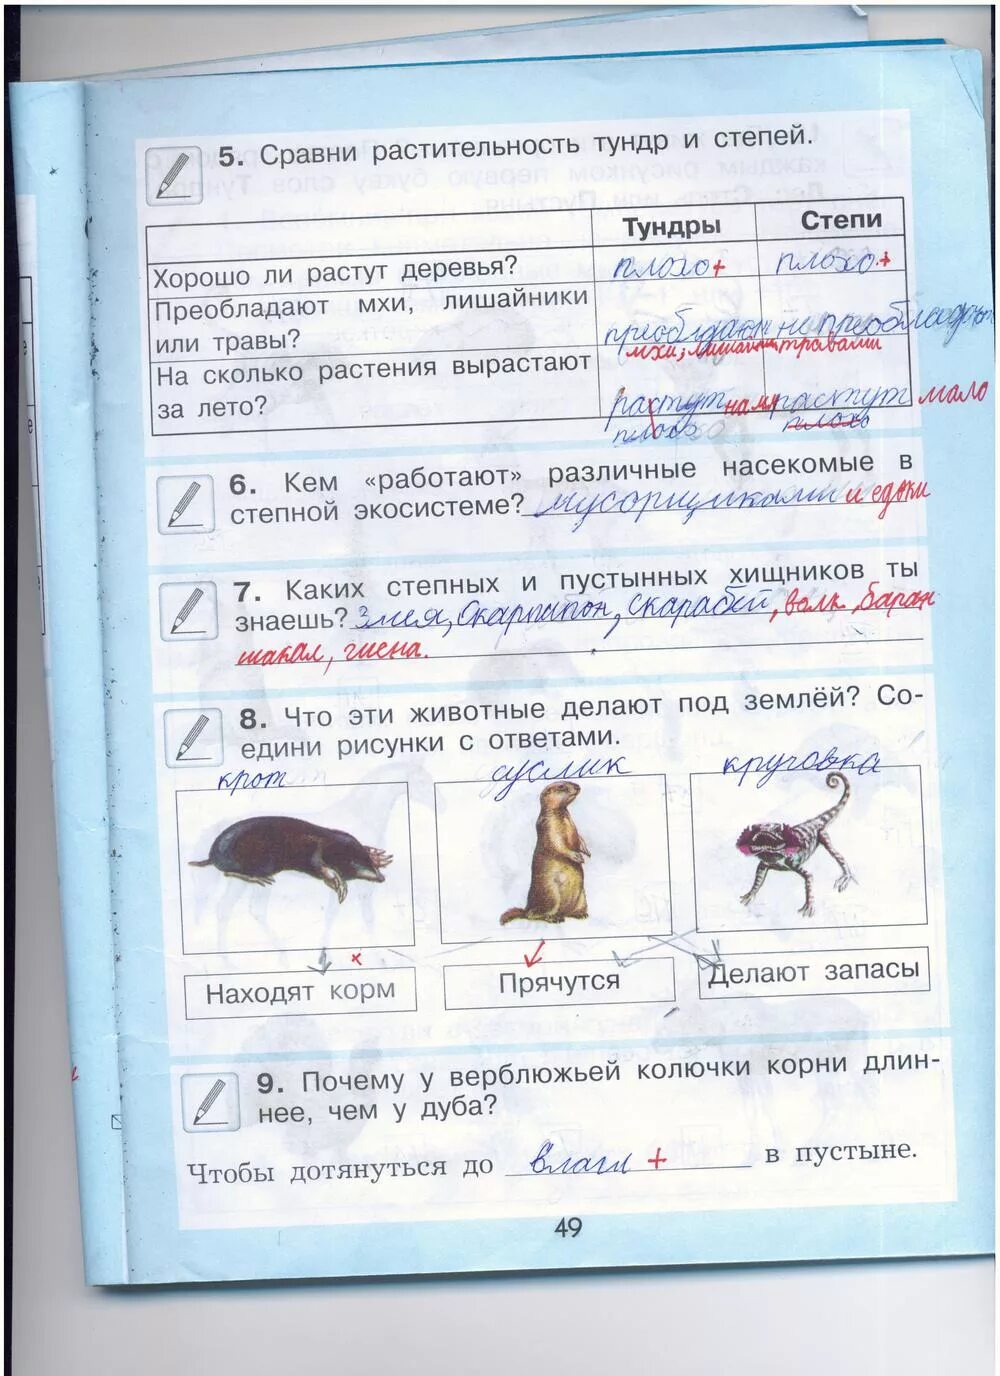 5. Сравни растительность тундр и степей.
Тундры Степи
Хорошо ли растут деревья? плохо + плохо +
Преобладают мхи, лишайники
или травы? не преобладают
мхи, травами
На сколько растения вырастают
за лето? растут растут мало
плохо плохо
6. Кем «работают» различные насекомые в
степной экосистеме? мусорщиками и едоки
7. Каких степных и пустынных хищников ты
знаешь? Змея, скарпипон, скарабей, волк, баран
шакал, гиена.
8. Что эти животные делают под землёй? Со-
едини рисунки с ответами.
крот суслик круговка
Находят корм Прячутся Делают запасы
9. Почему у верблюжьей колючки корни длин-
нее, чем у дуба?
Чтобы дотянуться до влаги + в пустыне.
49